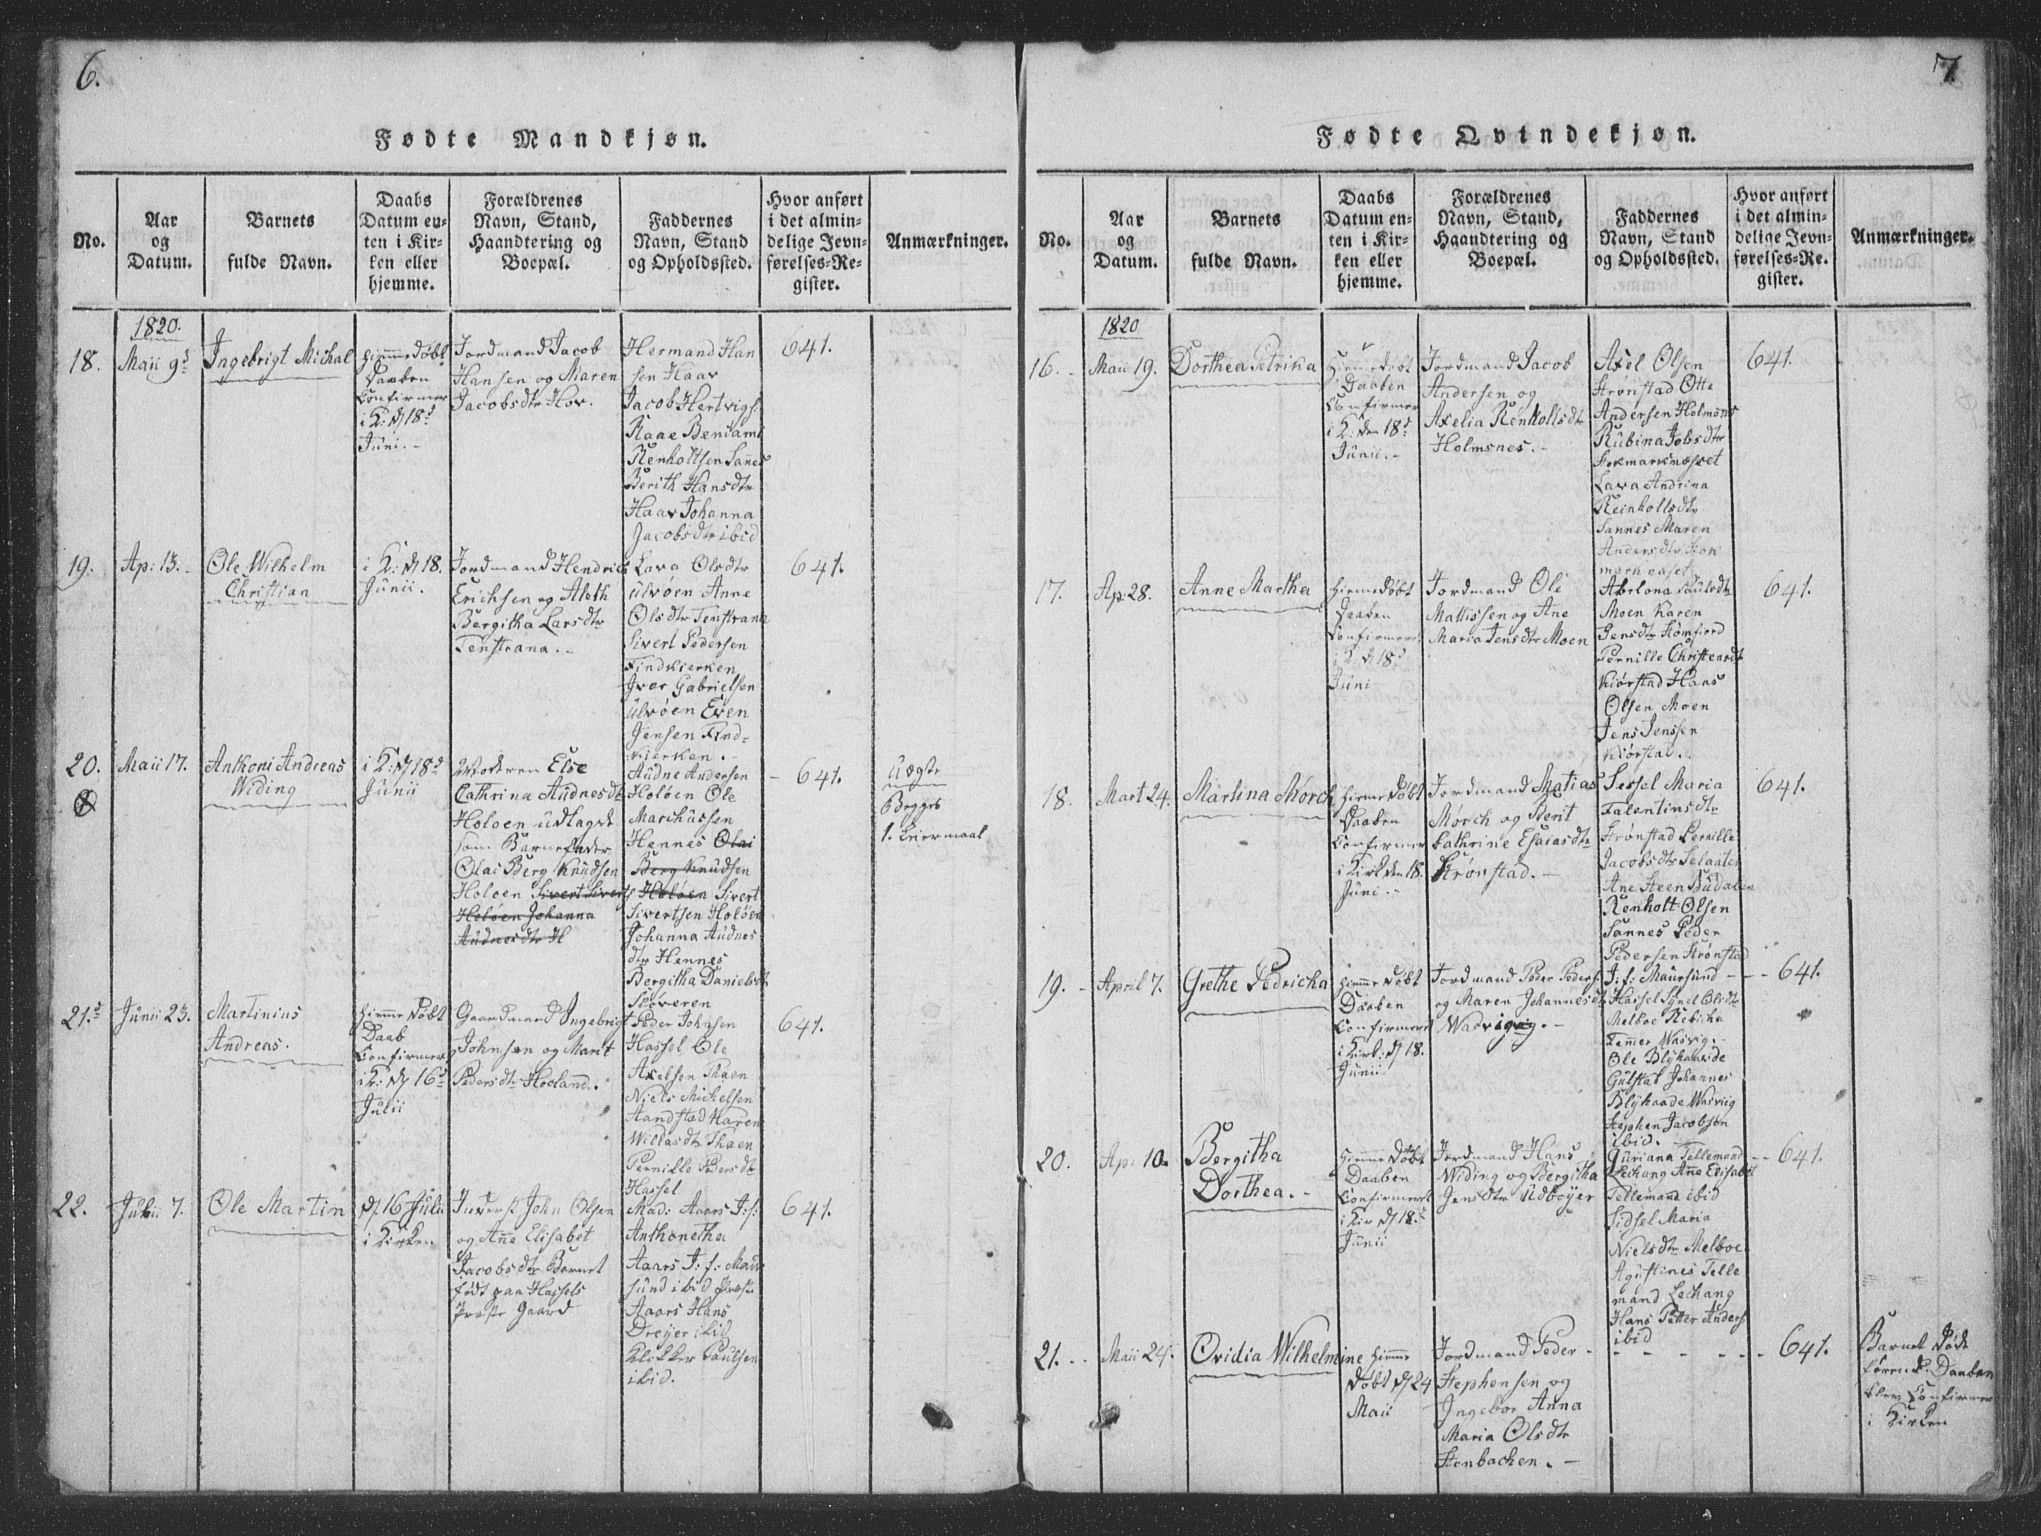 6.
Fødte Mandkjøn.
No.
Aar
og
Datum.
Barnets
fulde Navn.
Daabs
Datum en-
ten i Kir-
ken eller
hjemme.
Forældrenes
Navn, Stand,
Haandtering og
Boepæl.
Faddernes
Navn, Stand
og Opholdssted.
Hvor anført
i det almin-
delige Jevn-
førelses-Re-
gister.
Anmærkninger.
1820.
18.
Maii 9d
Ingebrigt Michal
hjemmedøbt
Daaben
Confirmer
i K: d 18d
Juni.-
Jordmand Jacob
Hansen og Maren
Jacobsdtr Hov.
Hermand Han
sen Haav
Jacob Hertvigs:
Raae Beniami
Renholtsen Sannes
Berith Hansdtr
Haav Johanna
Jacobsdtr ibid
641.
19.
Ap: 13.-
Ole Wilhelm
Christian
i K: d 18.
Junii.
Jordmand Hendric
Erichsen og Aleth
Bergitha Larsdtr
Tenstrana.-
Lava Olsdtr
Ulvøen Anne
Olsdtr Tenstrana
Sivert Pedersen
Findkierken
Iver Gabrielsen
Ulvøen Even
Jensen Find-
kierken.-
641.
20.
Maii 17.
Anthoni Andreas
Widing
i K: d 18d
Junii
Moderen Else
Cathrina Audnesdtr
Holøen udlagde
som Barnefader
Olai Berg Knudsen
Holøen Sivert Siverts
Holøen Johanna
Audnesdtr H
Audne Andersen
Holøen Ole
Marchussen
Hennes Olai
Berg Knudsen
Holøen Sivert
Sivertsen Holøen
Johanna Audnes-
dtr Hennes
Bergitha Danielsdt
Støveren
- 641.
Uægte
Begges
1. Leiermaal
21.d
Junii 23.
Martinius
Andreas.
hjemmedøbt
Daab
Confirmer
i K: d 16d
Julii
Gaardmand Ingebrigt
Johnsen og Marit
Pedersdtr Hooland.
Peder Johnsen
Hassel Ole
Axelsen Thaen
Niels Michelsen
Sandstad Karen
Willasdtr Thaen
Pernille Pedersdtr
Hassel
641.
22.
Julii 7.
Ole Martin
d 16 Julii
i Kirken
Inderst John Olsen
og Ane Elisabet
Jacobsdtr Barnet
født paa Hassels
Præste Gaard
Mad: Aars J:f:
Anthonetha
Aars J: f: Maur
sund ibid Præst
Aaars Hans
Dreyer ibid
Klokker Paulsen
ibid.
641.
7.
Fødte Qvindekjøn.
No.
Aar
og
Datum.
Barnets
fulde Navn.
Daabs
Datum en-
ten i Kir-
ken eller
hjemme.
Forældrenes
Navn, Stand,
Haandtering og
Boepæl.
Faddernes
Navn, Stand
og Opholdssted.
Hvor anført
i det almin-
delige Jevn-
førelses-Re-
gister.
Anmærkninger.
1820
16.-
Maii 19.
Dorthea Petrika
Hiemmedøbt
Daaben
Confirmer
i K: den 18d
Junii.-
Jordmand Jacob
Andersen og
Axelia Renholtsdtr
Holmsnes.-
Axel Olsen
Strønstad Otte
Andersen Holmsnes
Rubina Jobsdtr
Stokmarknæsset
Lava Andrina
Reinholtsdtr
Sannes Maren
Andersdtr Stok
marknæset
641.
17.
Ap: 28.
Anne Marthea
hiemmedøbt
Daaben
Confirmeret
i K: d 18d
Juni
Jordmand Ole
Mattissen og Ane
Maria Jensdtr Moen
Abelona Paulsdtr
Moen Karen
Jensdtr Stømfiord
Pernille Christensdt
Kiørstad Hans
Olsen Moen
Jens Jenssen
Kiørstad.
641.
18.
Mart 24.
Martina Mørch
hiemmedøbt
Daaben
Confirmer
i Kirk den 18.
Juni.-
Jordmand Matias
Mørch og Berit
Cathrine Esaiasdtr
Strønstad.-
Sessel Maria
Falentinsdtr
Strønstad Pernille
Jacobsdtr Selaater
Ane Steen Budalen
Renholt Olsen
Sannes Peder
Pedersen Strønstad
641.
19.-
April 7.
Grethe Pedricka
hiemmedøbt
Daaben
Confirmeret
i Kirk: d 18.
Junii
Jordmand Peder Peders:
og Maren Johannesdt
Wasvigvig.-
J: f: Maursund
Hassel Synel Olsdtr
Melboe Rebicha
Lemmer Wasvig.-
Ole Blykaavide
Gulstad Johannes
Blykaade Wasvig
Stephen Jacobsøn
ibid.
641.
20.
Ap: 10.
Bergitha
Dorthea.-
hjemmedøbt
Daaben
Confirmeret
i Kir d 18.d
Junii
Jordmand Hans
Widing og Bergitha
Jensdtr Udbøyer
Guriana Tellemand
Lechang Ane Elisabet
Tellemand ibid
Sidsel Maria
Nielsdtr Melboe
Agustines Telle
mand Lechang
Hans Petter Anders
ibid
641.
21.
Maii 24.
Ovidia Wilhelmine
hiemme
døbt d 24
Maii
Jordmand Peder
Stephensen og
Ingebor Anna
Maria Olsdtr
Stenbachen.-
641.
Barnet Døde
førend Daaben
blev Confirmer
i Kirken